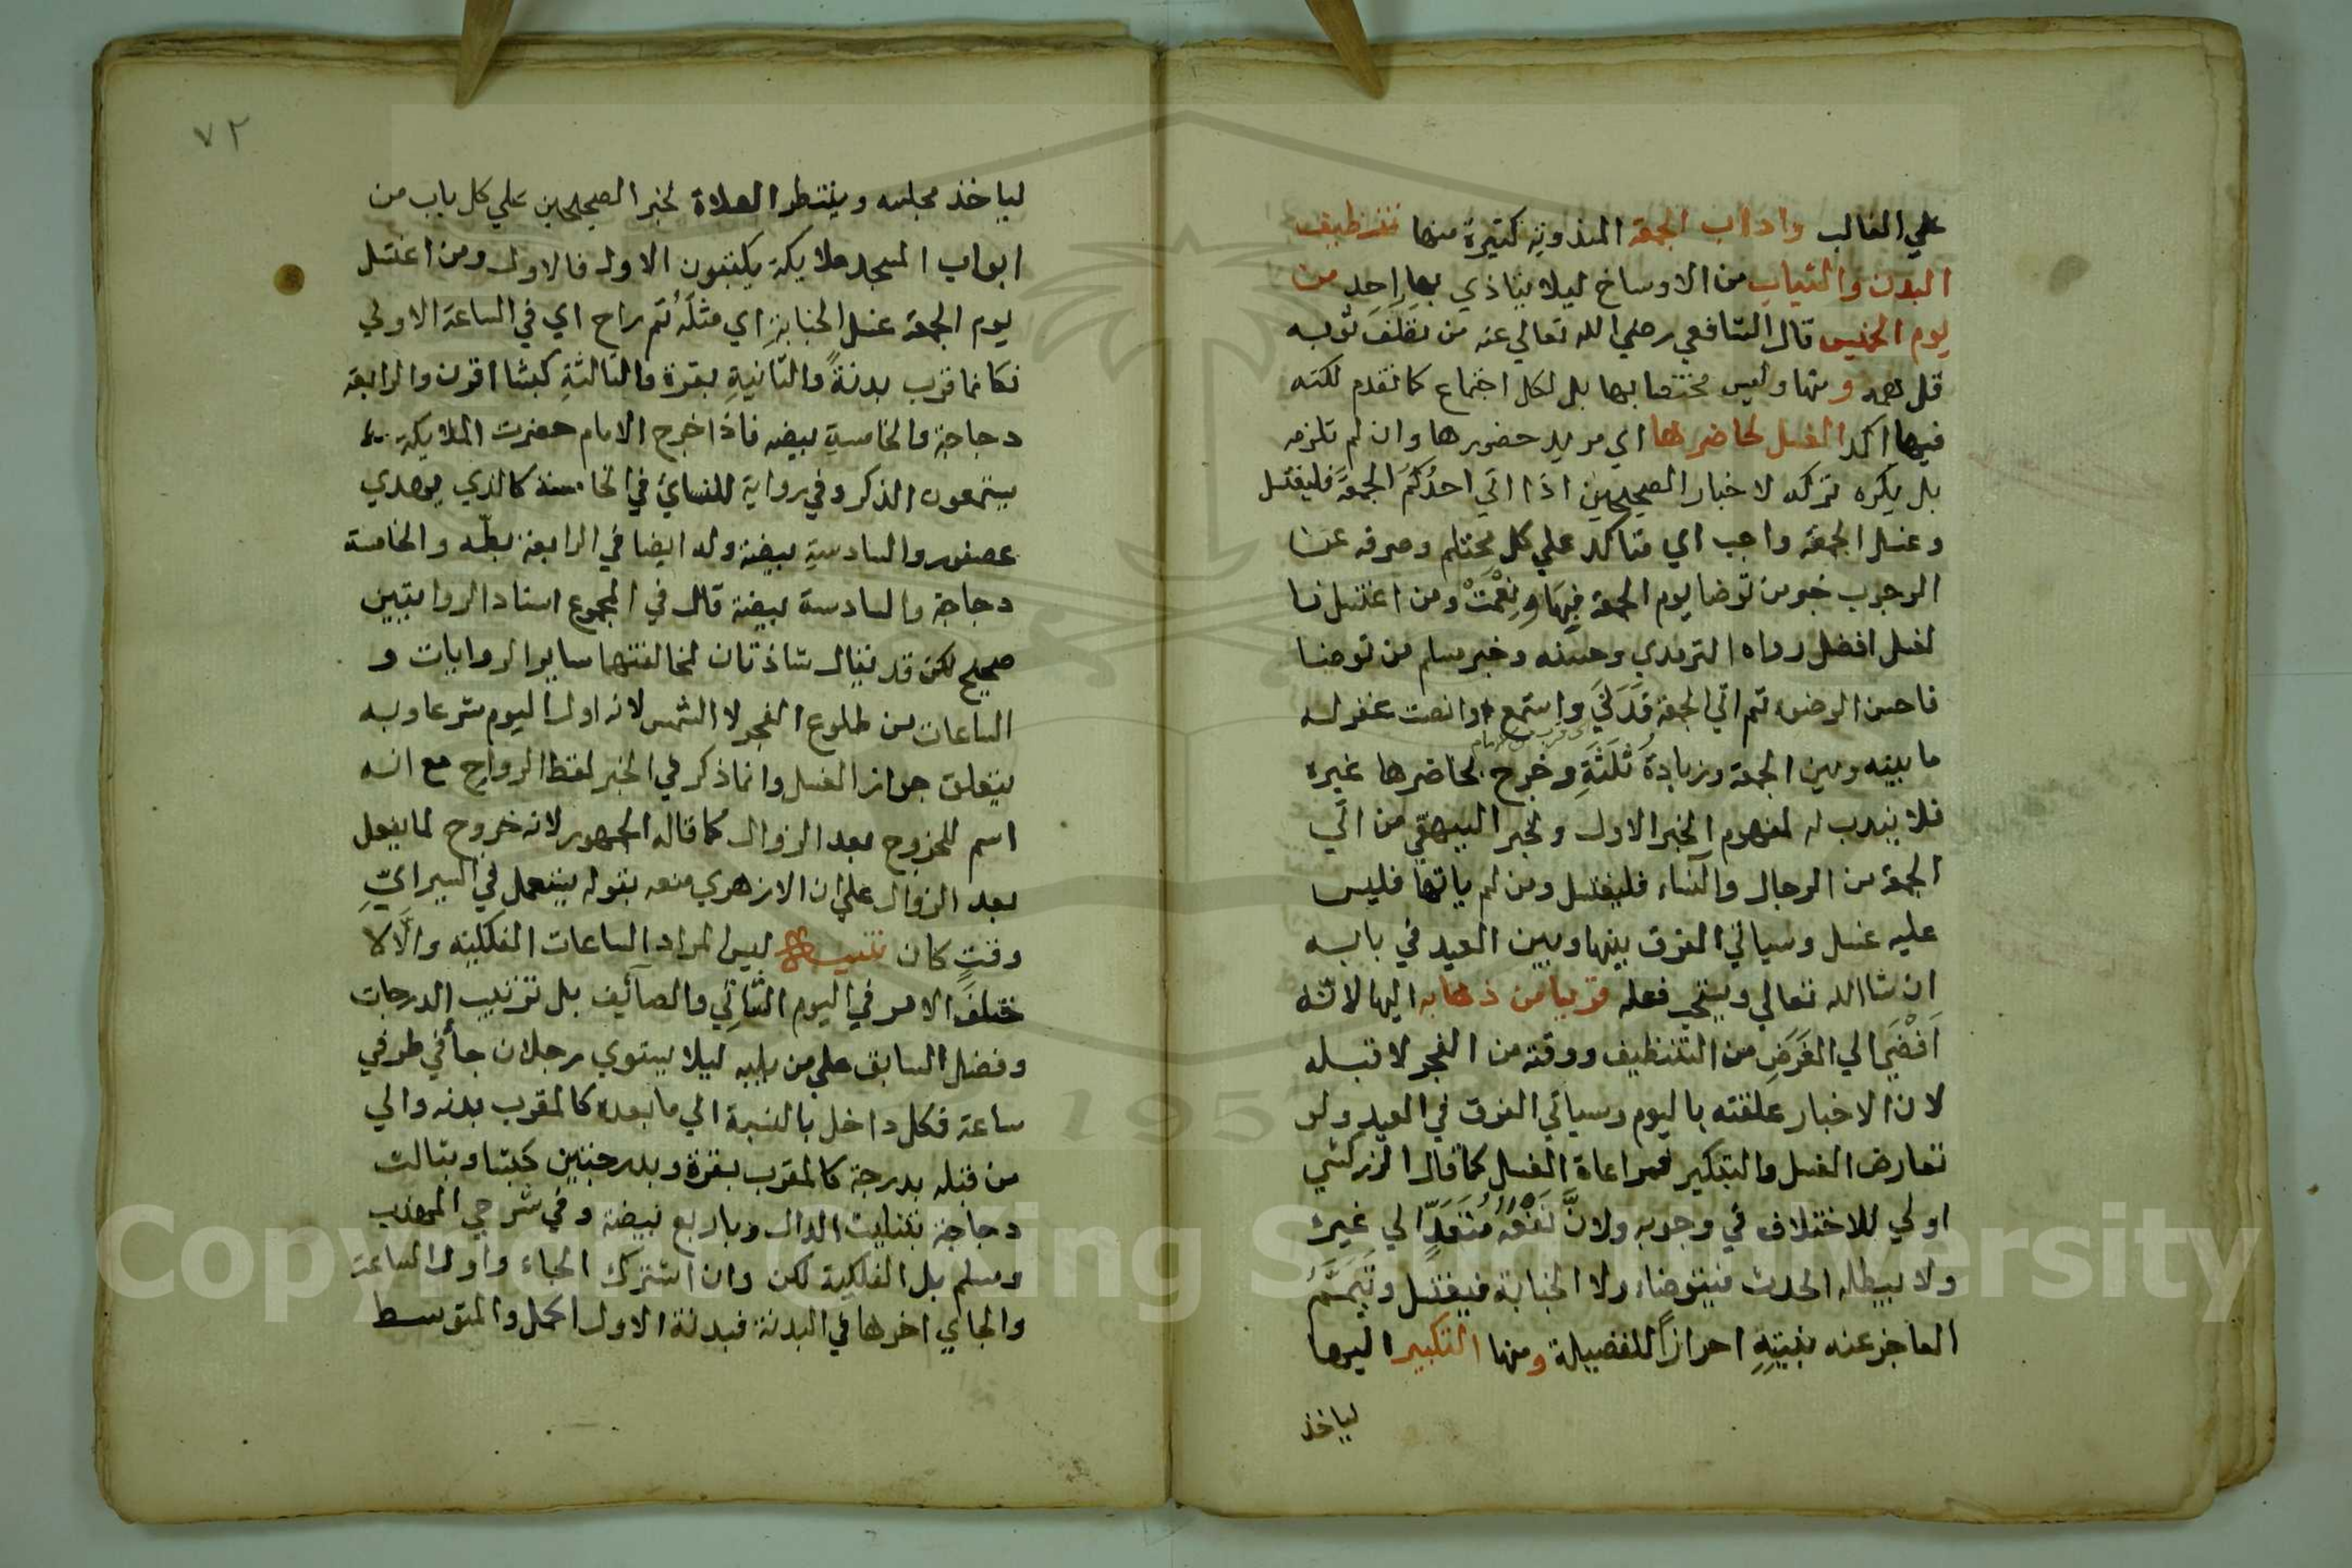 علي الغالب واداب الجمعة المندوبة كثيرة منها تنظيف
البدن والثياب من الاوساخ ليلا يتاذي بها احد من
يوم الخميس قال الشافعي رضي الله تعالي عنه من نظف ثوبه
قل همه ومنها وليس مختصا بها بل لكل اجتماع كما تقدم لكنه
فيها اكد الغسل لحاضرها اي مريد حضورها وان لم تلزمه
بل يكره تركه لاخبار الصحيحين اذا اتي احدُكُم الجمعةَ فليغتسل
وغسل الجمعة واجب اي متاكد علي كل محتلم وصرفه عن
الوجوب خبر من توضا يوم الجمعة فبِهَا ونِعْمَتْ ومن اغتسل فا
لغسل افضل رواه الترمذي وحسنه وخبر مسلم من توضا
فاحسن الوضوء ثم اتي الجمعة فَدَنَي واستمع وانصت غفر له
ما بينه وبين الجمعة وزيادةُ ثَلَثَةِ وخرج بحاضرها غيره
فلا يندب له لمفهوم الخبر الاول ولخبر البيهقي من اتَي
الجمعة من الرجال والنساء فليغتسل ومن لم ياتها فليس
عليه غسل وسياتي الفرق بينها وبين العيد في بابه
ان شا الله تعالي وينبغي فعله قريبا من ذهابه اليها لانه
اَفْضَي الي الغَرَضِ من التنظيف ووقته من الفجر لا قبله
لان الاخبار علقته باليوم وسياتي الفرق في العيد ولو
تعارض الغسل والتبكير فمراعاة الغسل كما قال الزركشي
اولي للاختلاف في وجوبه ولانَّ نَفْعَهُ مُتَعَدٍّ الي غيره
ولا يبطله الحدث فيتوضاء ولا الجنابة فيغتسل وتَيَمَّمُ
العاجز عنه بنيتِهِ احرازاً للفضيلة ومنها التبكير اليها
لياخذ
٧٢
لياخذ مجلسه وينتظر الصلاة لخبر الصحيحين علي كل باب من
ابواب المسجد ملايكة يكتبون الاول فالاول ومن اغتسل
يوم الجمعة غسل الجنابةِ اي مثلَهُ ثم راح اي في الساعة الاولي
فكانما قرب بدنةً والثانيةِ بقرة والثالثةِ كبشا اقرن والرابعة
دجاجة والخامسةِ بيضه فاذا خرج الامام حضرت الملايكة
يستمعون الذكر وفي رواية للنسائ في الخامسة كالذي يهدي
عصفور والسادسةِ بيضة وله ايضا في الرابعة بطّه والخامسة
دجاجة والسادسة بيضة قال في المجموع اسناد الروايتين
صحيح لكن قد يقال شاذتان لمخالفتهما ساير الروايات و
الساعات من طلوع الفجر لا الشمس لانه اول اليوم شرعا وبه
يتعلق جواز الغسل وانما ذكر في الخبر لفظ الرواح مع انه
اسم للخروج بعد الزوال كما قاله الجمهور لانه خروج لما يفعل
بعد الزوال علي ان الازهري منعه بقوله يستعمل في السير ايّ
وقتٍ كان تنبيه ليس المراد الساعات الفلكية والَّا لا
ختلفَ الامر في اليوم الشاتي والصآيف بل ترتيب الدرجات
وفضل السابق علي من يليه ليلا يستوي رجلان جاأ في طرفي
ساعة فكل داخل بالنسبة الي ما بعده كالمقرب بدنه والي
من قبله بدرجة كالمقرب بقرة وبدرجتين كبشا وبثالث
دجاجة بتثليث الدال وباربع بيضة وفي شرحي المهذب
ومسلم بل الفلكية لكن وان اشترك الجاء واول الساعة
والجاي اخرها في البدنة فبدنة الاول اكمل والمتوسط